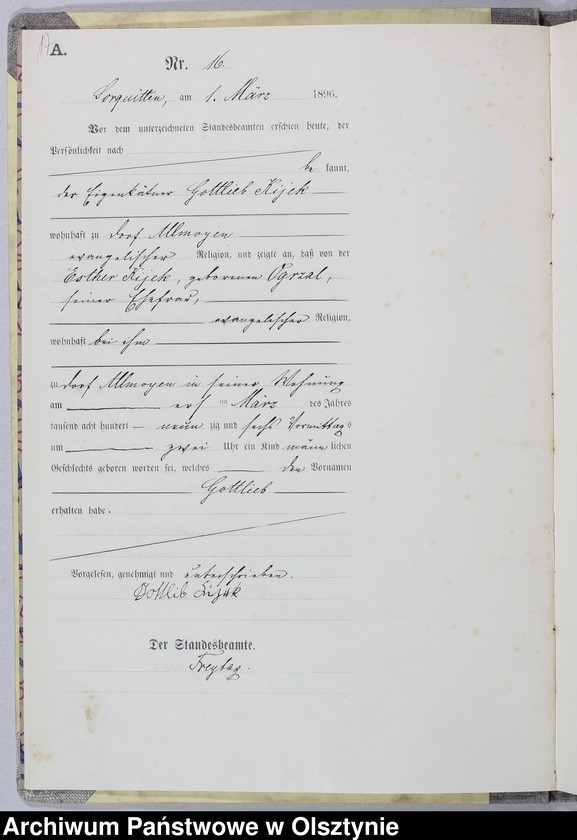 A.
Nr. 16.
Sorquitten, am 1. März 1896.
Vor dem unterzeichneten Standesbeamten erschien heute, der
Persönlichkeit nach
be kannt,
der Eigenkätner Gottlieb Kijek
wohnhaft zu Dorf Allmoyen
evangelischer Religion, und zeigte an, daß von der
Esther Kijek, geborenen Ogrzal,
seiner Ehefrau,
evangelischer Religion,
wohnhaft bei ihm
zu Dorf Allmoyen in seiner Wohnung
am ersten März des Jahres
tausend acht hundert neun zig und sechs Vormittags
um zwei Uhr ein Kind männlichen
Geschlechts geboren worden sei, welches den Vornamen
Gottlieb
erhalten habe.
Vorgelesen, genehmigt und unterschrieben.
Gottlib Kijek
Der Standesbeamte.
Freytag.
Archiwum Państwowe w Olsztynie